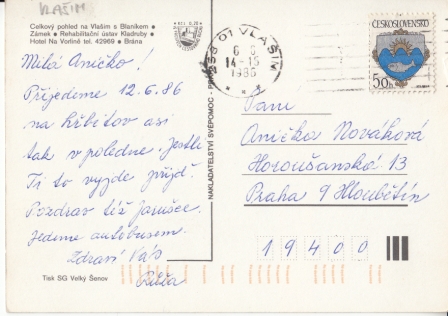 VLAŠIM
Celkový pohled na Vlašim s Blaníkem •
Zámek • Rehabilitační ústav Kladruby •
Hotel Na Vorlině tel. 42969 • Brána
Milá Aničko!
Přijedeme 12.6.86
na hřbitov asi
tak v poledne. Jestli
Ti to vyjde přijď.
Pozdrav též Jarušce.
Jedeme autobusem.
Zdraví Vás
Tisk SG Velký Šenov
NAKLADATELSTVÍ SVÉPOMOC
258 01 VLAŠIM
6 6
14-15
1986
ČESKOSLOVENSKO
50h
Paní
Anička Nováková
Horoušanská 13
Praha 9 Hloubětín
19400